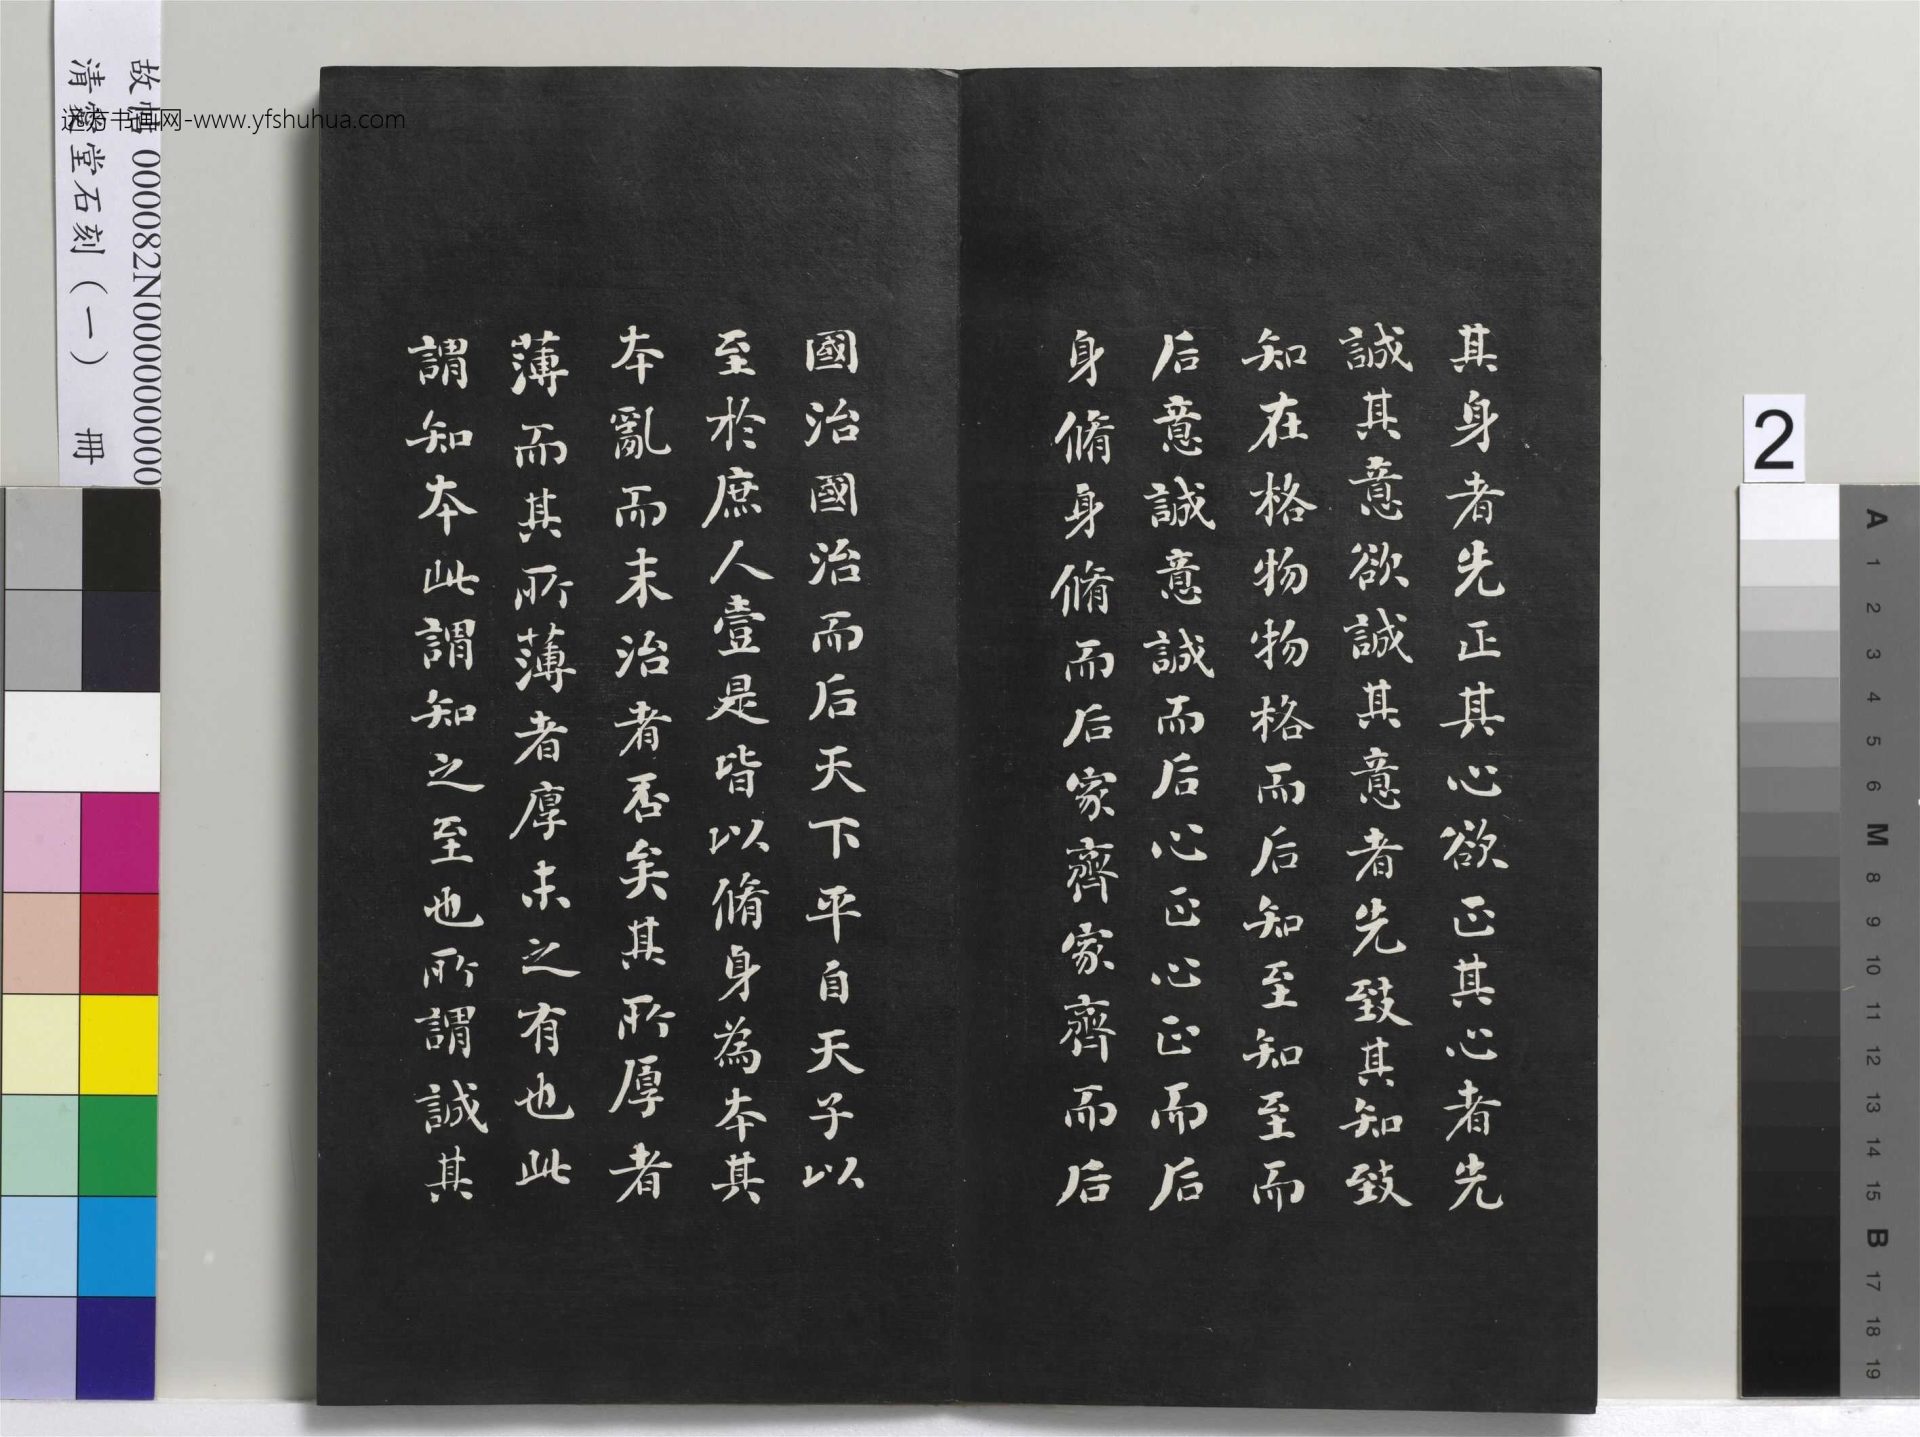 其身者先正其心欲正其心者先
誠其意欲誠其意者先致其知致
知在格物物格而后知至知至而
后意誠意誠而后心正心正而后
身脩身脩而后家齊家齊而后
國治國治而后天下平自天子以
至於庶人壹是皆以脩身為本其
本亂而末治者否矣其所厚者
薄而其所薄者厚未之有也此
謂知本此謂知之至也所謂誠其
故帖 000082N000000000
清愛堂石刻(一) 冊
书画网-www.yfshuhua.com
2
A
1
2
3
4
5
6
M
8
9
10
11
12
13
14
15
B
17
18
19